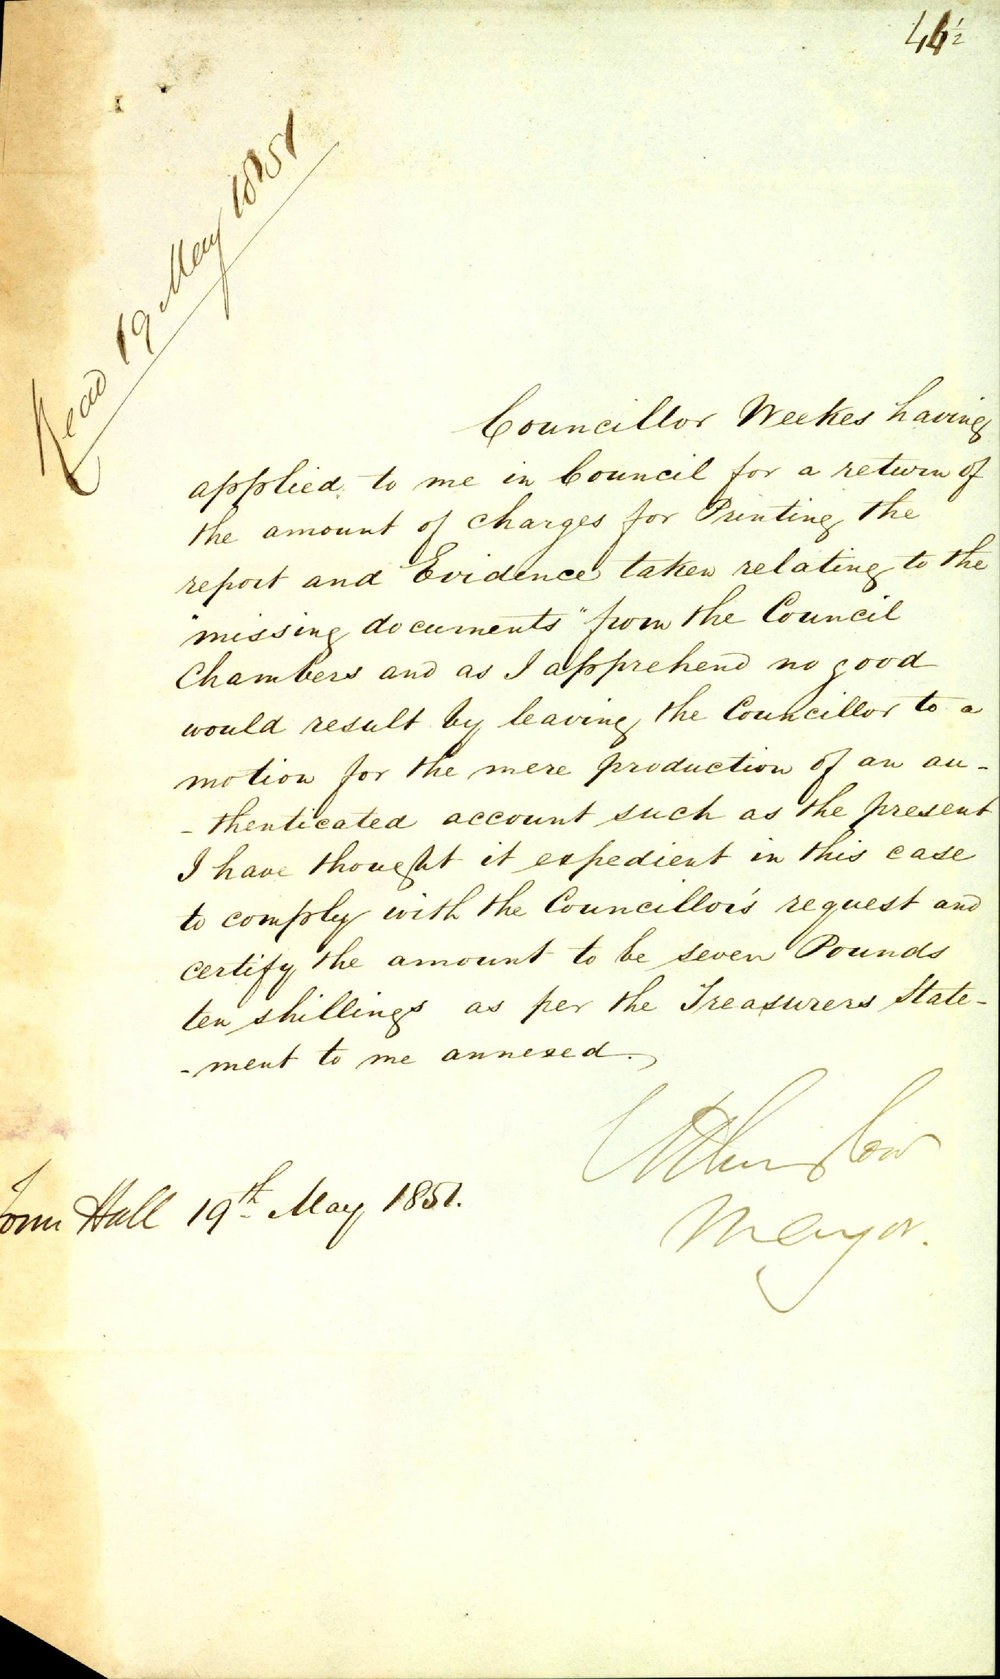 44½
Read 19 May 1851
Councillor Weekes having
applied to me in Council for a return of
the amount of charges for Printing the
report and Evidence taken relating to the
"missing documents" from the Council
Chambers and as I apprehend no good
would result by leaving the Councillor to a
motion for the mere production of an au-
-thenticated account such as the present
I have thought it expedient in this case
to comply with the Councillor's request and
certify the amount to be seven Pounds
ten shillings as per the Treasurers State-
-ment to me annexed.
Mayor.
Town Hall 19th May 1851.